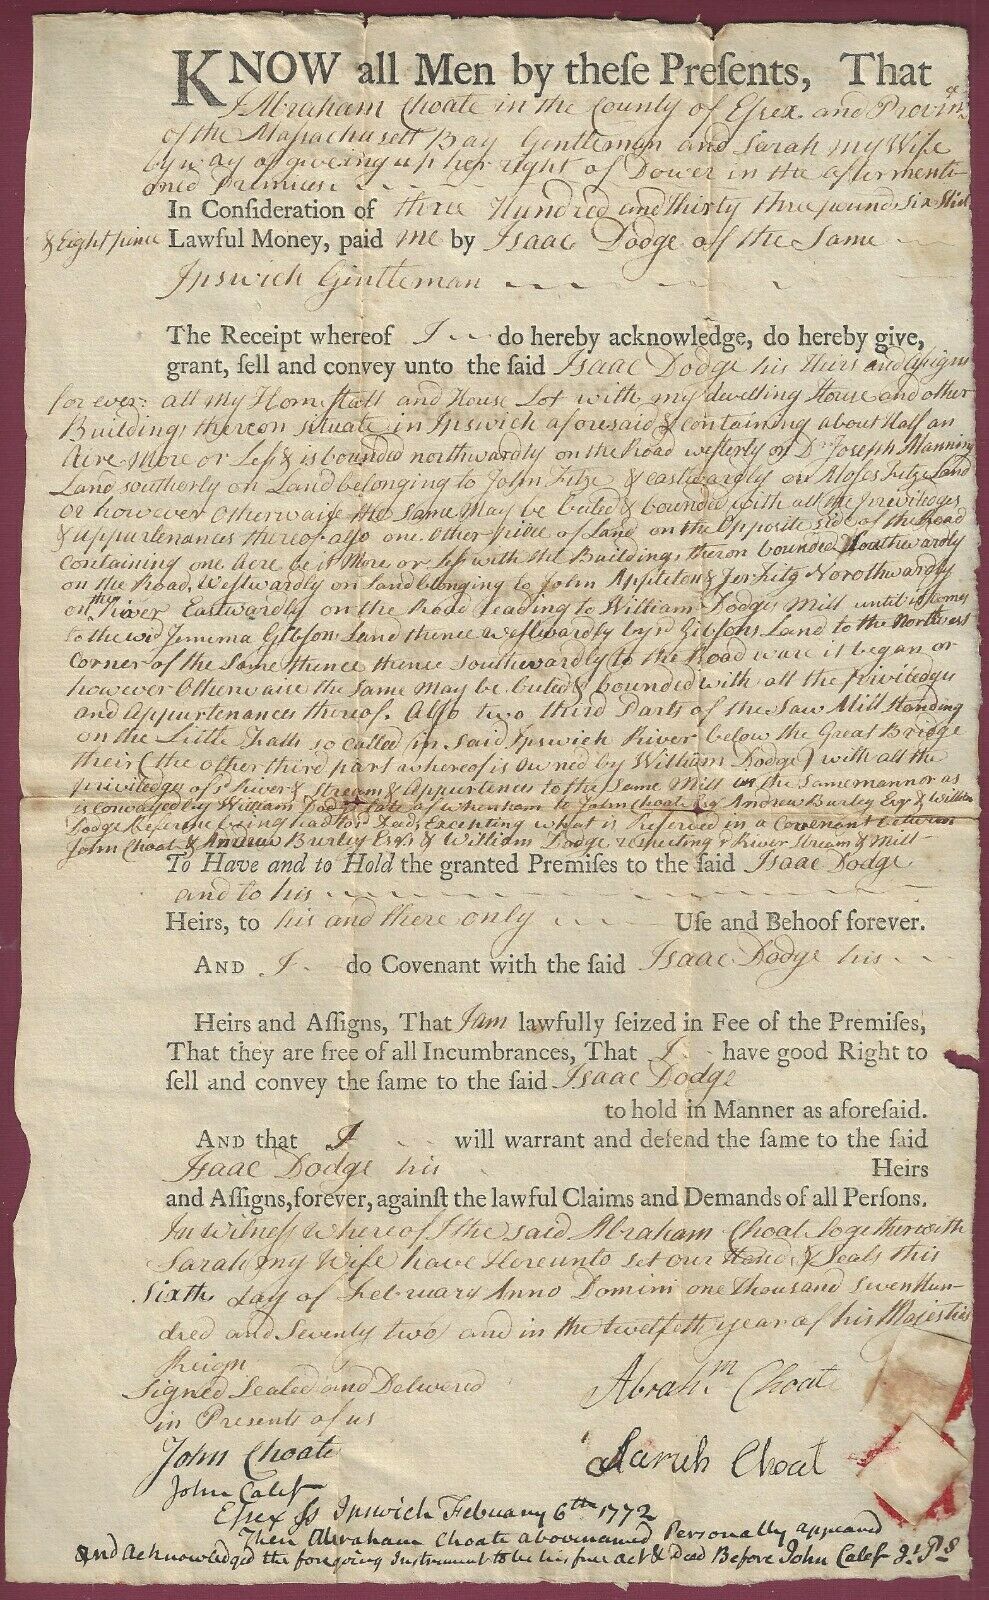 KNOW all Men by theſe Preſents, That
I Abraham Choate in the County of Eſsex and Provin
of the Massachusett Bay Gentleman and Sarah my Wife
by way of giveing up her right of Dower in the after menti-
oned Premises
In Conſideration of three Hundred and thirty three pounds six Shill
& Eight pence Lawful Money, paid me by Isaac Dodge of the Same
Ipswich Gentleman
The Receipt whereof I do hereby acknowledge, do hereby give,
grant, ſell and convey unto the ſaid Isaac Dodge his Heirs and aſsigns
for ever: all my Home Stall and House Lot with my dwelling House and other
Buildings thereon situate in Ipswich aforesaid & containing about Half an
Acre More or Leſs & is bounded northwardly on the Road westerly on Dr Joseph Manning
Land southerly on Land belonging to John Fitze & eastwardly on Moses Fitze Land
or however Otherwaise the Same May be buted & bounded with all the Priviledges
& appurtenances thereof also one Other piece of Land on the Opposite side of the Road
Containing one Acre be it More or leſs with the Buildings theron bounded Southwardly
on the Road, Westwardly on Land belonging to John Appleton & Jer Fitz Norothwardly
on the River Eastwardly on the Road leading to William Dodges Mill until it comes
to the wid Jemema Gibson Land thence Westwardly by sd Gibsons Land to the North west
Corner of the Same thence thence Southwardly to the Road ware it began or
however Otherwaise the Same May be buted & bounded with all the Priviledges
and Appurtenances thereof. Also two third Parts of the Saw Mill Standing
on the Little Falls so called in Said Ipswich River below the Great Bridge
their (the other third part whereof is Owned by William Dodge) with all the
priviledge of sd River & Stream & Appurtences to the Same Mill in the Same mannor as
is convayed by William Dodge late of Whenham to John Choate Esq Andrew Burley Esqr & William
Dodge Referrence being had to sd Deed, Excepting what is Reserved in a Covenant between
John Choate & Andrew Burley Esqrs & William Dodge Respecting sd River Stream & Mill
To Have and to Hold the granted Premiſes to the ſaid Isaac Dodge
and to his
Heirs, to his and there only Uſe and Behoof forever.
AND I do Covenant with the ſaid Isaac Dodge his
Heirs and Aſſigns, That I am lawfully ſeized in Fee of the Premiſes,
That they are free of all Incumbrances, That I have good Right to
ſell and convey the ſame to the ſaid Isaac Dodge
to hold in Manner as aforeſaid.
AND that I will warrant and defend the ſame to the ſaid
Isaac Dodge his Heirs
and Aſſigns, forever, againſt the lawful Claims and Demands of all Perſons.
In Witneſs Whereof I the said Abraham Choat together with
Sarah my Wife have Hereunto set our Hands & Seals this
Sixth day of February Anno Domini one Thousand Seven Hun-
dred and Seventy two and in the twelfeth year of his Majesties
Reign
Signed Sealed and Delivered
in Presents of us
Abrahm Choat
John Choate
Sarah Choat
John Calef
Eſsex ſs Ipswich February 6th 1772
Then Abraham Choate abovenamed Personally appeared
and acknowledged the foregoing Instrument to be his free act & Deed Before John Calef Js Ps